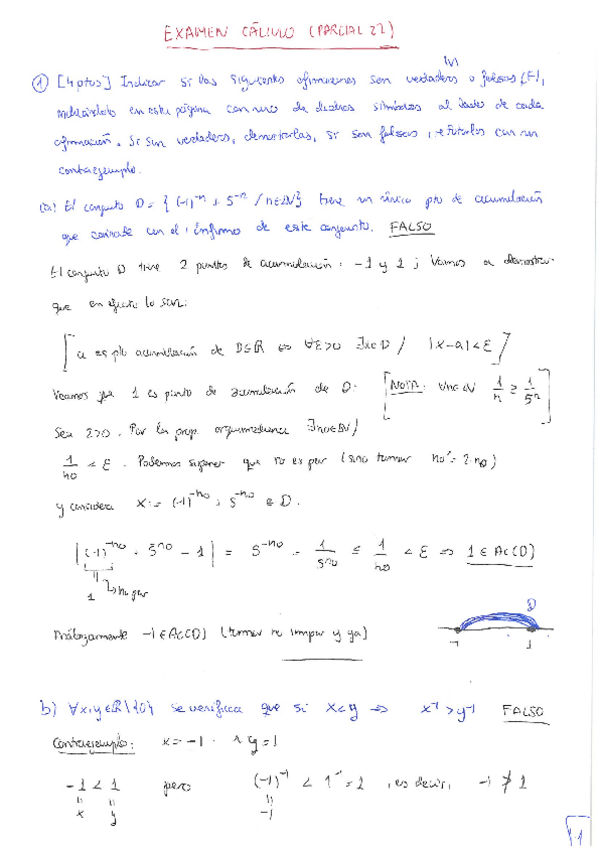 EXAMEN CÁLCULO (PARCIAL 22)
① [4 ptos] Indicar si las siguientes afirmaciones son verdaderas (V) o falsas (F),
indicándolo en esta página con uno de dichos símbolos al lado de cada
afirmación. Si son verdaderas, demostrarlas, si son falsas, refutarlas con un
contraejemplo.
(a) El conjunto D = { (-1)^-n + 5^-n / n∈ℕ } tiene un único pto de acumulación
que coincide con el ínfimo de este conjunto. FALSO
El conjunto D tiene 2 puntos de acumulación: -1 y 1; Vamos a demostrar
que en efecto lo son:
[ a es pto acumulación de D⊆ℝ ⇔ ∀ε>0 ∃x∈D / |x-a|<ε ]
Veamos que 1 es punto de acumulación de D: [NOTA: ∀n∈ℕ 1/n ≥ 1/5^n]
Sea ε>0. Por la prop. arquimediana ∃n0∈ℕ/
1/n0 < ε. Podemos suponer que n0 es par (sino tomar n0' = 2·n0)
y considera x := (-1)^-n0 + 5^-n0 ∈ D.
|(-1)^-n0 + 5^-n0 - 1| = 5^-n0 = 1/5^n0 ≤ 1/n0 < ε ⇒ 1∈Ac(D)
"
1 ↳ n0 par
D
Análogamente -1∈Ac(D) (tomar n0 impar y ya)
-1 1
b) ∀x,y∈ℝ\{0} se verifica que si x<y ⇒ x^-1 > y^-1 FALSO
Contraejemplo: x=-1 · y y=1
-1 < 1 pero (-1)^-1 < 1^-1 = 1, es decir, -1 ≯ 1
" " "
x y -1
1